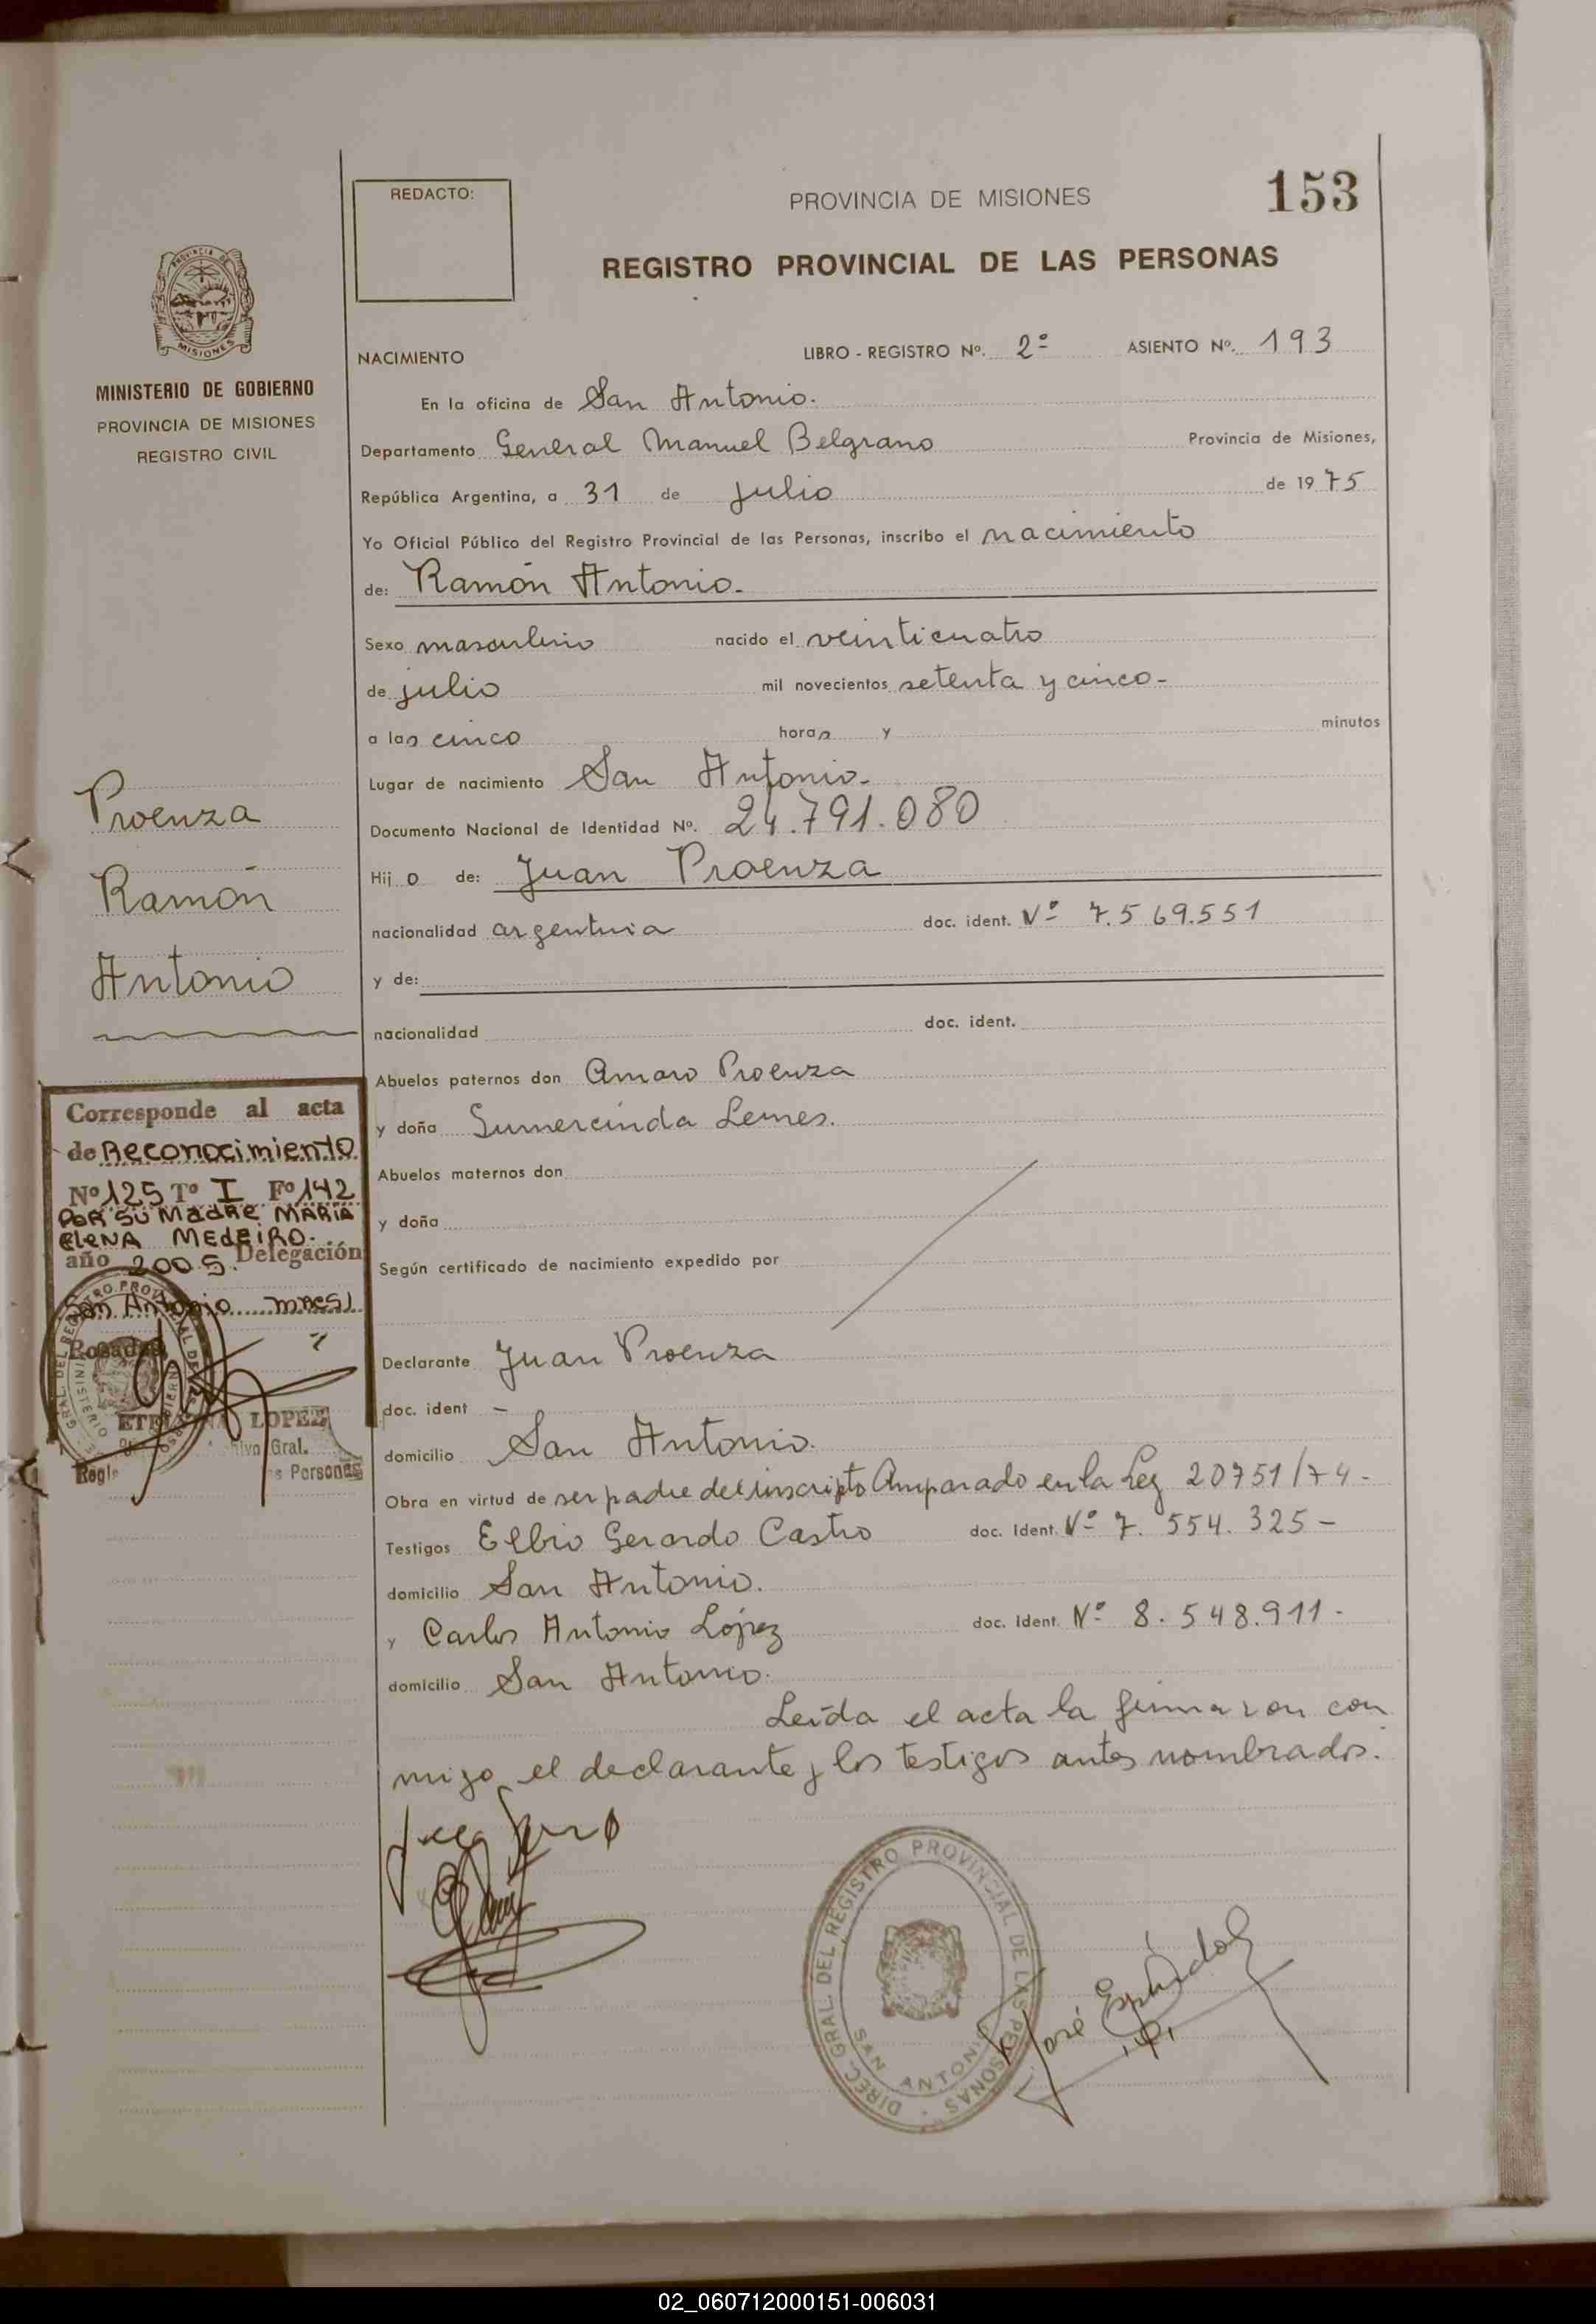 REDACTO:
PROVINCIA DE MISIONES
153
REGISTRO PROVINCIAL DE LAS PERSONAS
PROVINCIA DE
MISIONES
MINISTERIO DE GOBIERNO
PROVINCIA DE MISIONES
REGISTRO CIVIL
NACIMIENTO LIBRO - REGISTRO Nº. 2º ASIENTO Nº. 193
En la oficina de San Antonio.
Departamento General Manuel Belgrano Provincia de Misiones,
República Argentina, a 31 de julio de 1975
Yo Oficial Público del Registro Provincial de las Personas, inscribo el nacimiento
de: Ramón Antonio-
Sexo masculino nacido el veinticuatro
de julio mil novecientos setenta y cinco-
a las cinco horas y minutos
Lugar de nacimiento San Antonio-
Documento Nacional de Identidad Nº. 24.791.080
Hijo de: Juan Proenza
nacionalidad argentina doc. ident. Nº 7.569.551
y de:
nacionalidad doc. ident.
Abuelos paternos don Amaro Proenza
y doña Sumercinda Lemes.
Abuelos maternos don
y doña
Según certificado de nacimiento expedido por
Declarante Juan Proenza
doc. ident -
domicilio San Antonio.
Obra en virtud de ser padre del inscripto Amparado en la Ley 20751/74-
Testigos Elbio Gerardo Castro doc. Ident. Nº 7.554.325-
domicilio San Antonio.
y Carlos Antonio López doc. Ident. Nº 8.548.911-
domicilio San Antonio.
Leída el acta la firmaron con
migo el declarante y los testigos antes nombrados.
Proenza
Ramón
Antonio
Corresponde al acta
de Reconocimiento
Nº 125 Tº I Fº 142
POR SU MADRE MARIA
ELENA MEDEIRO.
año 2005. Delegación
San Antonio mnes)
Posadas,
LOPEZ
Gral.
Personas
DIREC. GRAL. DEL REGISTRO PROVINCIAL DE LAS PERSONAS
SAN ANTONIO
José
02_060712000151-006031